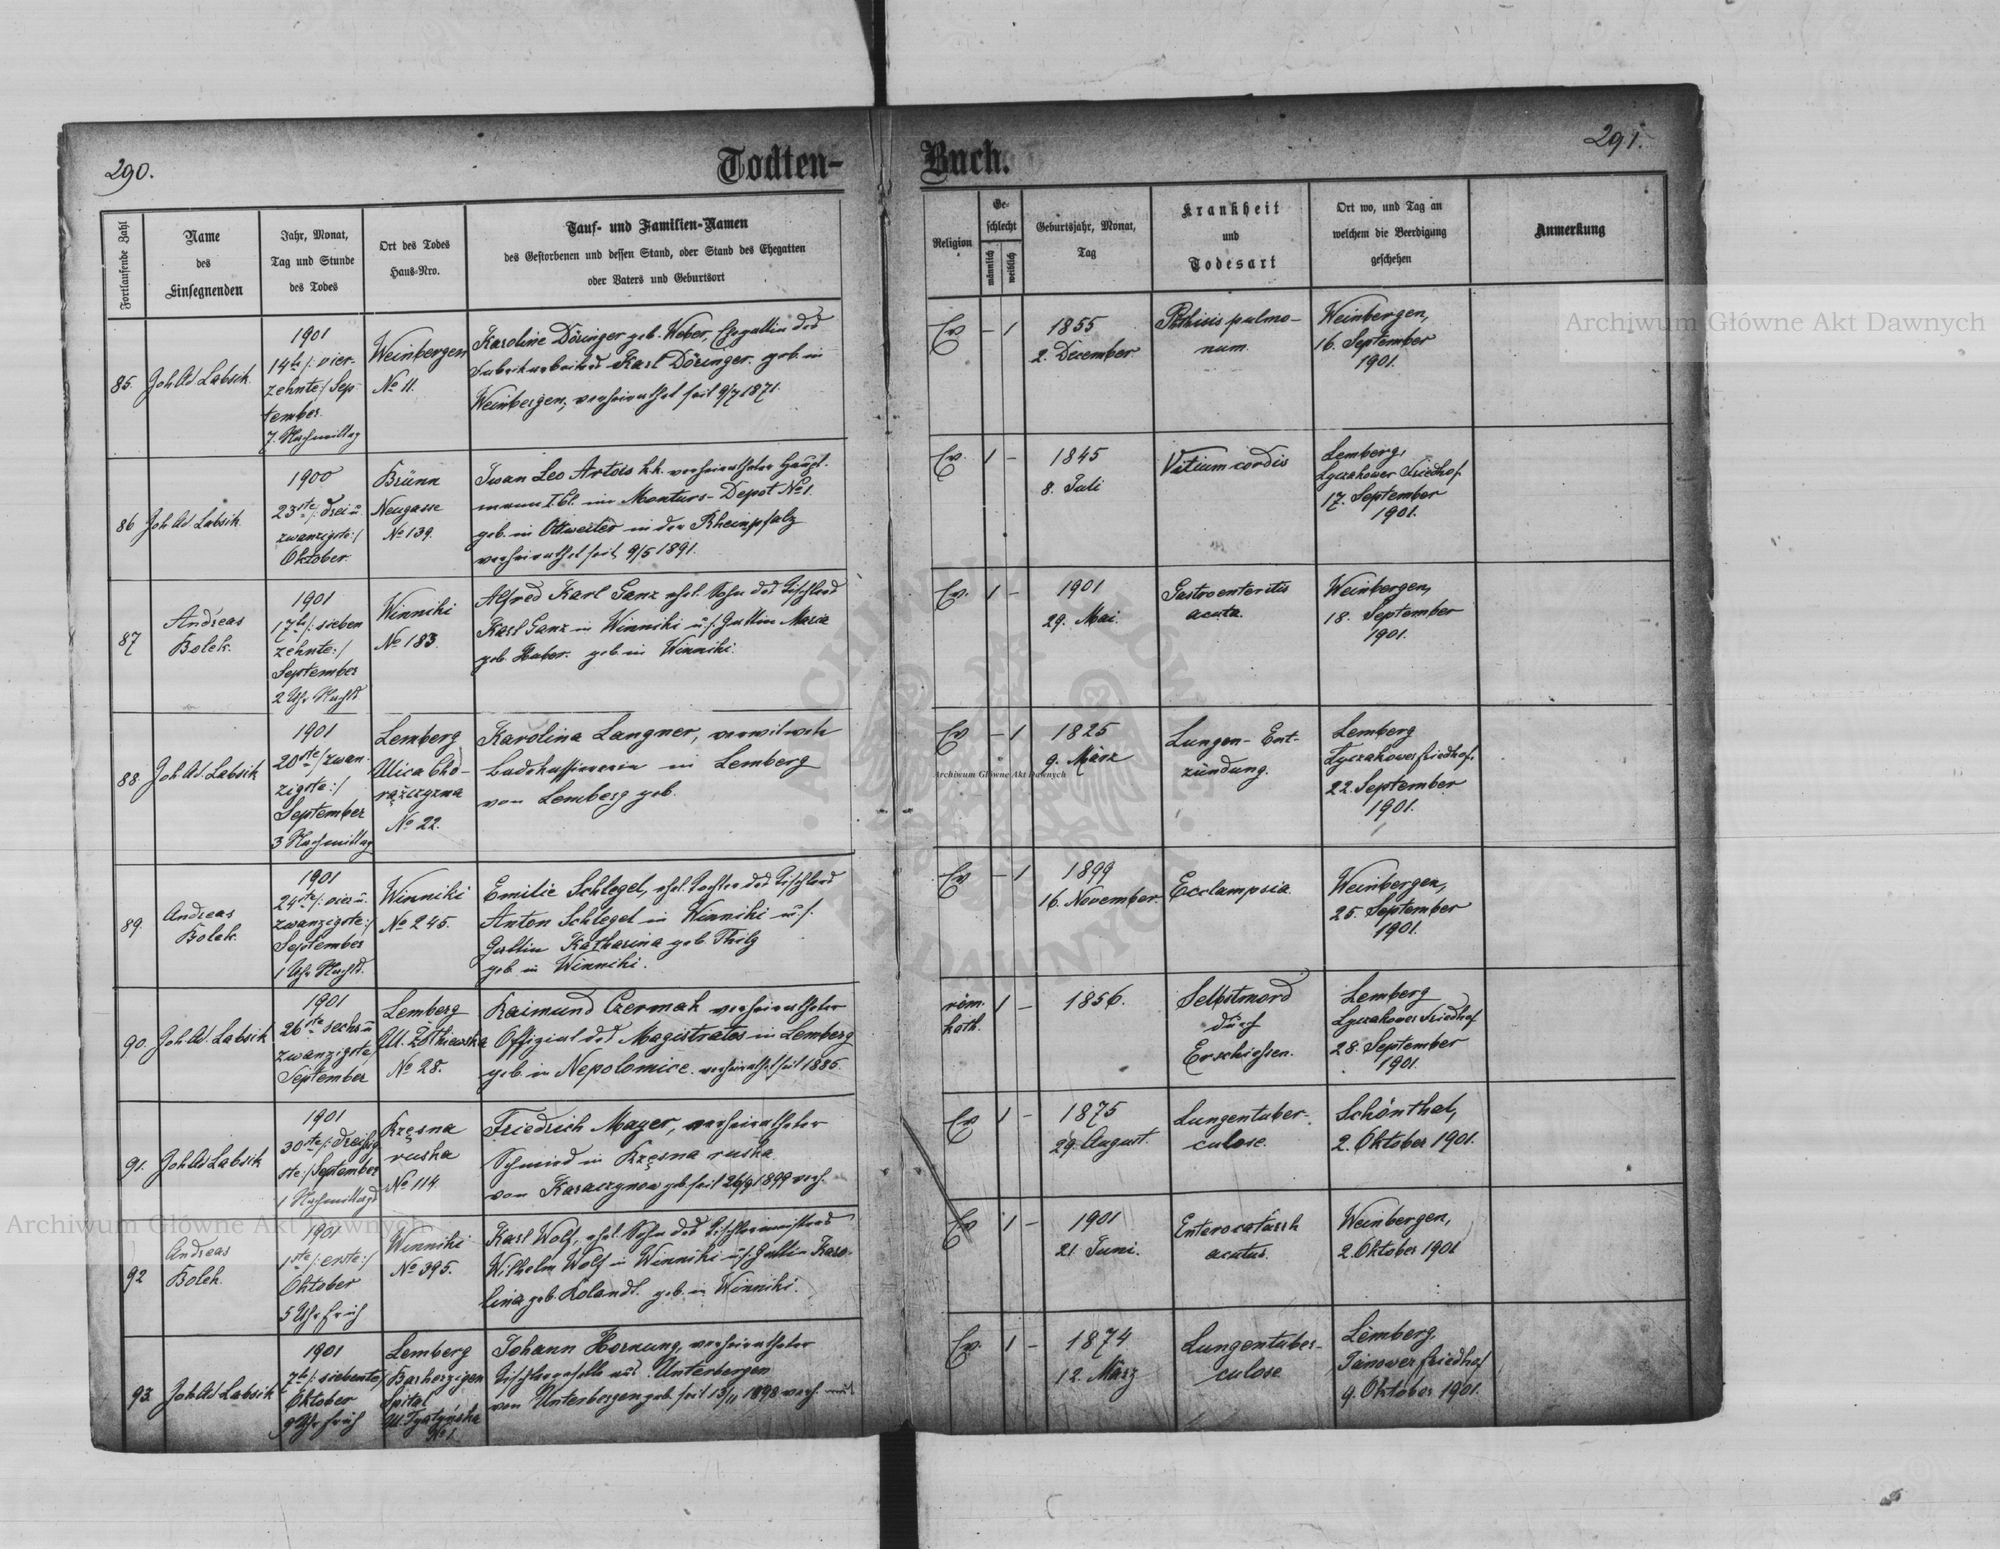 290.
Todten-
Buch.
291.
Fortlaufende Zahl
Name
des
Einsegnenden
Jahr, Monat,
Tag und Stunde
des Todes
Ort des Todes
Haus-Nro.
Tauf- und Familien-Namen
des Gestorbenen und dessen Stand, oder Stand des Ehegatten
oder Vaters und Geburtsort
Religion
Ge-
schlecht
männlich
weiblich
Geburtsjahr, Monat,
Tag
Krankheit
und
Todesart
Ort wo, und Tag an
welchem die Beerdigung
geschehen
Anmerkung
85.
Joh Ad Labsik
1901
14te /: vier-
zehnte :/ Sep-
tember.
7. Nachmittag
Weinbergen
No 11.
Karoline Döringer geb. Weber, Ehgattin des
Fabrikarbeiters Karl Döringer. geb. in
Weinbergen, verheirathet seit 9/7 1871.
Ev
– 1
1855
2. December
Phthisis pulmo-
num.
Weinbergen,
16. September
1901.
86
Joh Ad Labsik
1900
23ste /: drei u
zwanzigste :/
Oktober.
Brünn
Neugasse
No 139.
Iwan Leo Artois k.k. verheiratheter Haupt-
mann I Cl. im Monturs-Depot No 1.
geb. in Ottweiler in der Rheinpfalz
verheirathet seit 9/5 1891.
Ev.
1 –
1845
8. Juli
Vitium cordis
Lemberg,
Lyczakower Friedhof
17. September
1901.
87
Andreas
Bolek.
1901
17te /: sieben
zehnte :/
September
2 Uhr Nachts
Winniki
No 183.
Alfred Karl Ganz ehel. Sohn des Tischlers
Karl Ganz in Winniki u. s. Gattin Maria
geb. Huber. geb. in Winniki.
Ev.
1 –
1901
29. Mai.
Gastroenteritis
acuta.
Weinbergen,
18. September
1901.
88
Joh Ad. Labsik
1901
20ste /: zwan-
zigste :/
September
3 Nachmittag
Lemberg
Ulica Cho-
rążczyzna
No 22.
Karolina Langner, verwitweth
in Lemberg
von Lemberg geb.
Ev
– 1
1825
9. März
Lungen-Ent-
zündung.
Lemberg
Lyczakower friedhof.
22. September
1901.
89.
Andreas
Bolek.
1901
24ste /: vier u.
zwanzigste :/
September
1 Uhr Nachts.
Winniki
No 245.
Emilie Schlegel, ehel. Tochter des Tischlers
Anton Schlegel in Winniki u. s.
Gattin Katharina geb. Theilg
geb. in Winniki.
Ev
– 1
1899
16. November.
Ecclampsia.
Weinbergen,
25. September
1901.
90.
Joh Ad. Labsik
1901
26ste sechs u
zwanzigste
September
Lemberg
Ul. Żółkiewska
No 28.
Raimund Czermak verheiratheter
Offizial des Magistrates in Lemberg
geb. in Nepolomice. verheirathet seit 1885.
röm.
kath.
1 –
1856.
Selbstmord
durch
Erschiessen.
Lemberg
Lyczakower Friedhof
28. September
1901.
91.
Joh Ad Labsik
1901
30ste /: dreissig
ste :/ September
1 Nachmittags
Krzesna
ruska
No 114.
Friedrich Mayer, verheiratheter
Schmied in Krzesna ruska.
von Karaczynow geb seit 26/9 1899 verh.
Ev
1 –
1875
29. August.
Lungentuber-
culose.
Schönthal,
2. Oktober 1901.
92
Andreas
Bolek.
1901
1ste /: erste :/
Oktober
5 Uhr früh
Winniki
No 395.
Karl Wolf, ehel. Sohn des Tischlermeisters
Wilhelm Wolf in Winniki u. s. Gattin Karo-
lina geb. Kolandt. geb. in Winniki.
Ev
1 –
1901
21. Juni.
Enterocatarrh
acutus.
Weinbergen,
2. Oktober 1901
93.
Joh Ad Labsik
1901
7te /: siebente /
Oktober
9 Uhr früh
Lemberg
Barherzigen
Spital
No 1.
Johann Hornung, verheiratheter
Tischlergeselle aus Unterbergen
von Unterbergen geb. seit 13/11 1898 verh.
Ev.
1 –
1874.
12. März
Lungentuber-
culose
Lemberg,
Janower friedhof
9. Oktober 1901.
Archiwum Główne Akt Dawnych
Archiwum Główne Akt Dawnych
Archiwum Główne Akt Dawnych